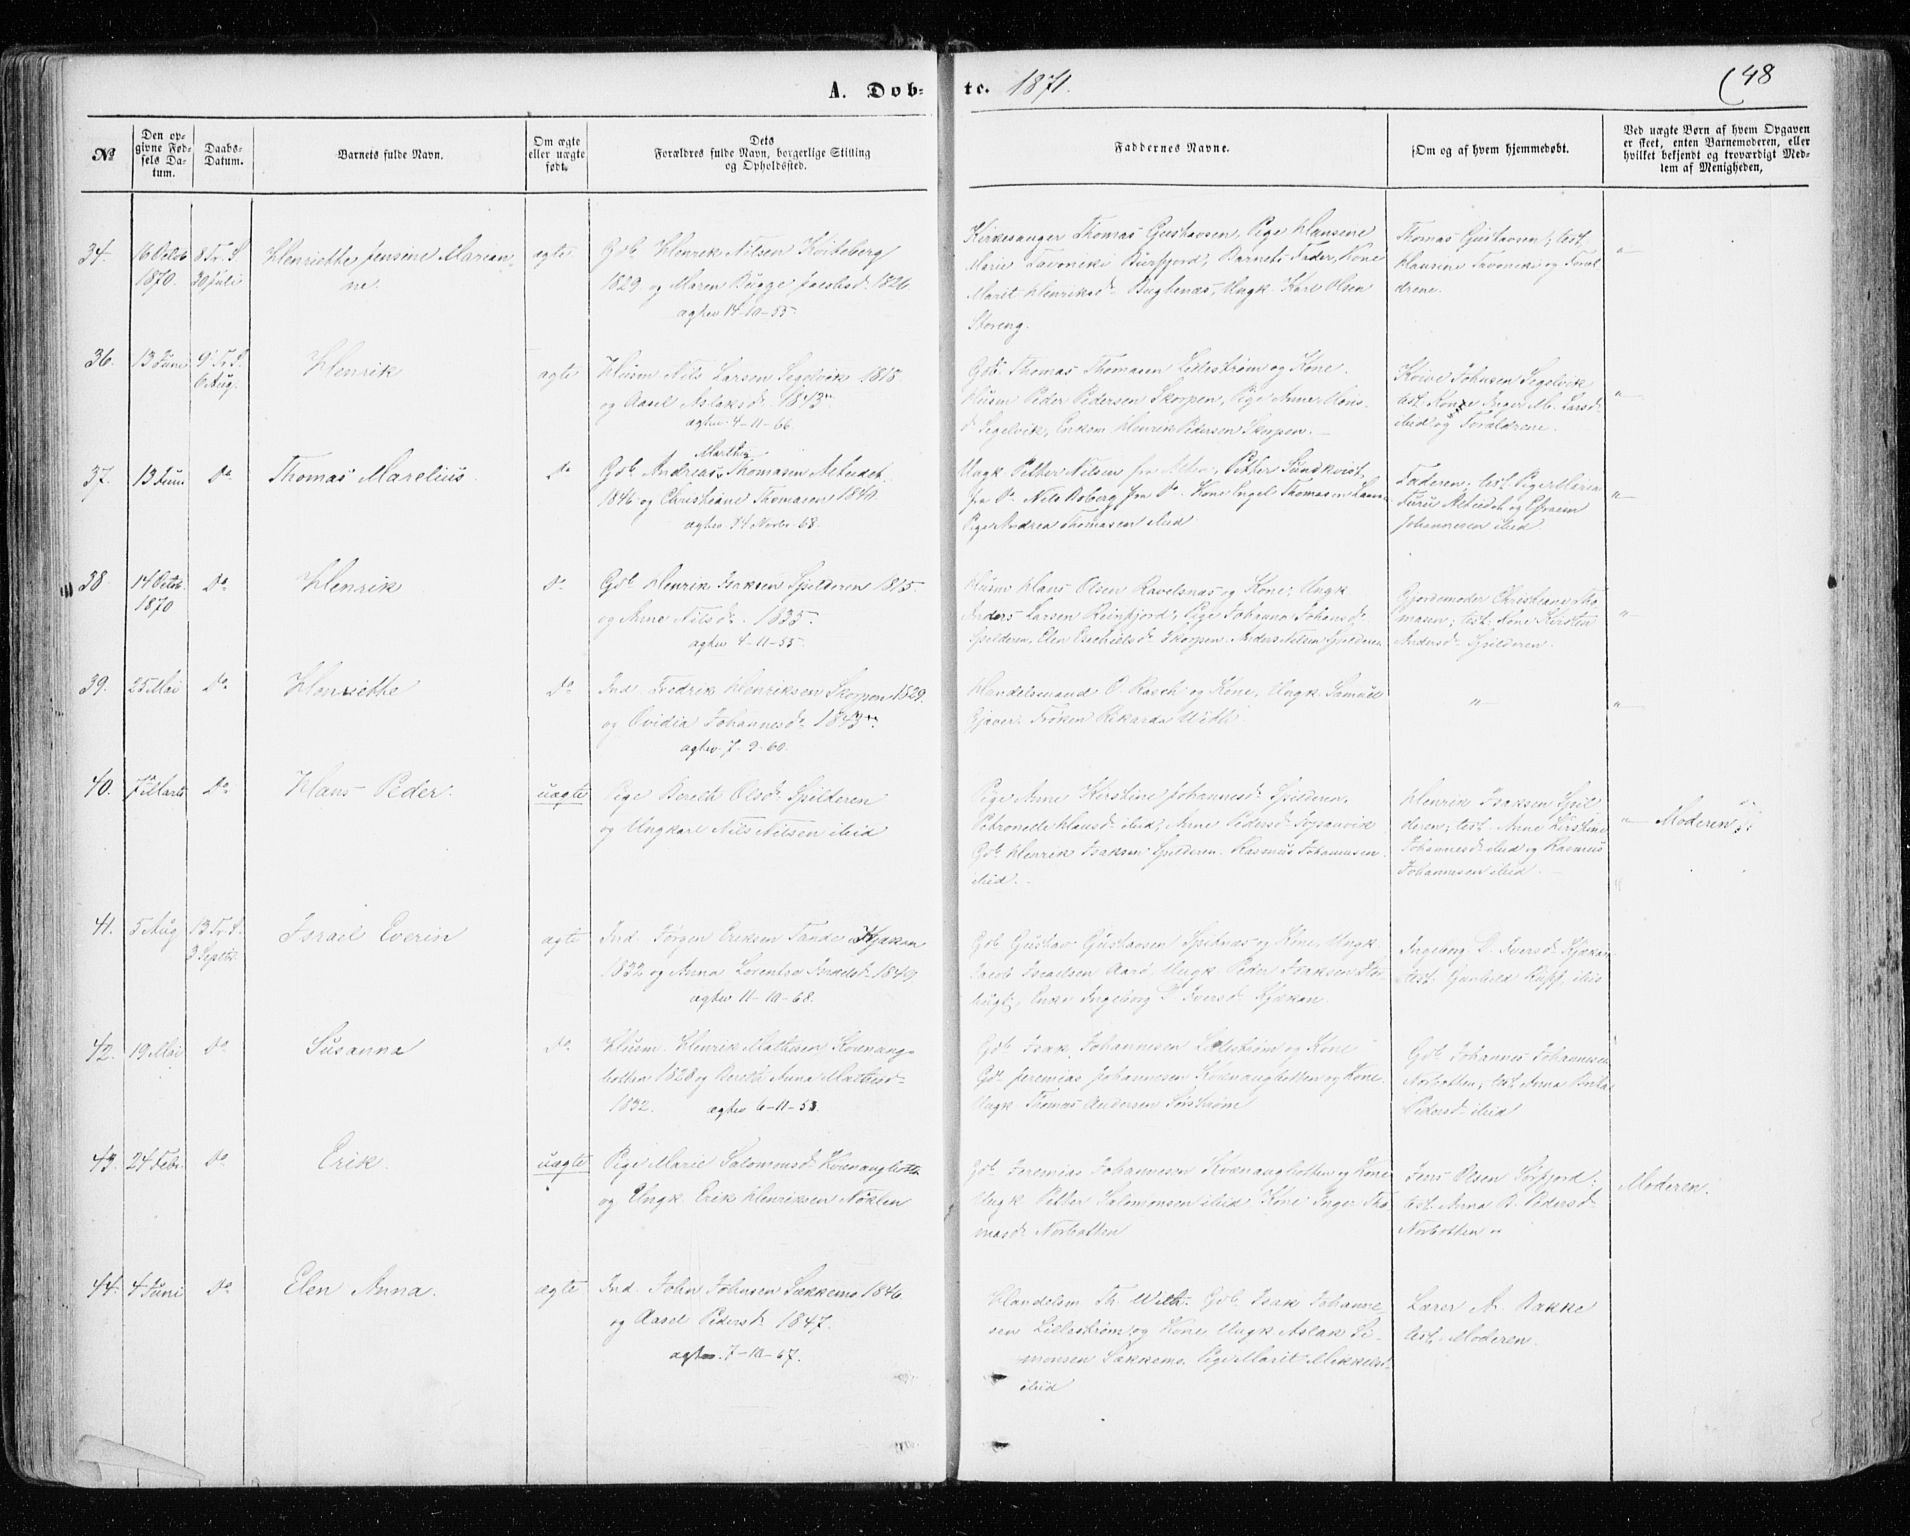 A. Døb- te. 1871. 48
№
Den op-
givne Fød-
sels Da-
tum.
Daabs-
Datum.
Barnets fulde Navn.
Om ægte
eller uægte
født.
Dets
Forældres fulde Navn, borgerlige Stilling
og Opholdssted.
Faddernes Navne.
Om og af hvem hjemmedøbt.
Ved uægte Børn af hvem Opgaven
er skeet, enten Barnemoderen, eller
hvilket bekjendt og troværdigt Med-
lem af Menigheden,
34.
16 Octob
1870.
8 Tr. S
30 Juli
Henriette Jensine Marian-
ne.
ægte
Gdb Henrik Nilsen Kviteberg
1829 og Maren Bugge 1826
agtev 14-10-55
Kirkesanger Thomas Gustavsen, Pige Hansine
Marie Burfjord, Barnets Fader, Kone
Marit Henriksd. Ungk. Karl Olsen
Storeng.
Thomas Gustavsen; test.
Hansine og Foræl
drene.
"
36.
13 Juni
9 Tr. S.
6 Aug.
Henrik
ægte
Husm Nils Larsen Segelvik 1818
og Aasel Aslaksd. 1843
agtev 4-11-66
Gdb. Thomas Thomasen Lillestrøm og Kone.
Husm Peder Pedersen Skorpen, Pige Anne Hans-
d. Segelvik, Enkem. Henrik Pedersen Skorpen.
Johnsen Segelvik
test. Kone Inger M. Larsd.
ibid og Forældrene.
"
37.
13 Juni
Do
Thomas Marelius.
Do
Gdb Andreas Martin Thomasen
1846 og Christiane Thomasen 1840
agtev 14 Novbr. 68.
Ungk Petter Nilsen fra Petter Sundkvist
fra Do. Nils Boberg fra Do. Kone Engel Thomasen
Pige Andrea Thomasen ibid
Faderen; test. Pige Maren
og Efraim
Johannesen ibid
"
38
14 Octob.
1870
Do
Henrik
Do
Gdb Henrik Isaksen Spilderen 1815
og Anne Nilsd. 1835.
agtev 4-11-55
Husm Hans Olsen Ravelsnæs og Kone, Ungk
Anders Larsen Reinfjord, Pige Johanna Johansd.
Spilderen, Elen Skorpen. Anders Nilsen Spilderen
Gjordemoder Christiane Tho
masen; test. Kone Kirsten
Andersd. Spilderen.
"
39.
25 Mai
Do
Henriette
Do
Ind. Fredrik Henriksen Skorpen 1829.
og Ovidia Johannesd. 1843
agtev 7-9-60.
Handelsmand O. Rasch og Kone, Ungk. Samuel
Gjæver. Frøken Rikarda With.
"
"
40.
7 Marts
Do
Hans Peder.
uægte
Pige Bereth Olsd. Spilderen
og Ungkarl Nils Nilsen ibid
Pige Anne Kirstine Johannesd. Spilderen.
Petronelle Hansd. ibid, Anne Pedersd.
Gdb Henrik Isaksen Spilderen. Rasmus Johannesen
ibid.
Henrik Isaksen Spil
deren; test. Anne Kirstine
Johannesd. ibid og Rasmus
Johannesen ibid.
" Moderen
41.
5 Aug
13 Tr. S.
3 Septbr
Israel Everin
ægte
Ind. Jørgen Eriksen Tande Kjækan
1832 og Anna Lorentse Israelsd. 1849
agtev 11-10-68.
Gdb Gustav Gustavsen Spitnæs og Kone, Ungk.
Jacob Israelsen Aarö, Ungk. Peder Isaksen
Enke Ingeborg D. Iversd. Kjækan.
Ingeborg D. Iversd. Kjækan
test. Gunhild ibid
42.
19 Mai
Do
Susanna
Do
Husm. Henrik Mathisen Kvænang-
botten 1828 og Bereth Anna Mathisd
1832. agtev 6-11-53
Gdb Isak Johannesen Lillestrøm og Kone
Gdb Jeremias Johannesen Kvænangbotten og Kone.
Ungk Thomas Andersen Sørstrøm
Gdb Johannes Johannesen
Norbotten; test. Anna
Pedersd. ibid
43.
24 Febr.
Do
Erik.
uægte
Pige Marie Salomonsd. Kvænangbotten
og Ungk. Erik Henriksen Nøklen
Gdb Jeremias Johannesen Kvænangbotten og Kone
Ungk Petter Salomonsen ibid Kone Inger Tho
masd. Norbotten
Jens Olsen Sørfjord;
test. Anna B. Pedersd
Norbotten
Moderen.
44.
4 Juni
Do
Elen Anna.
ægte
Ind. John Johnsen Sækkemo 1846
og Aasel Pedersd. 1847.
agtev. 7-10-67.
Handelsm Th. With. Gdb Isak Johanne-
sen Lillestrøm og Kone Ungk Aslak Si-
monsen Sækkemo, Pige Marit Mikkelsd
ibid
Lærer A. Bakke
test. Moderen.